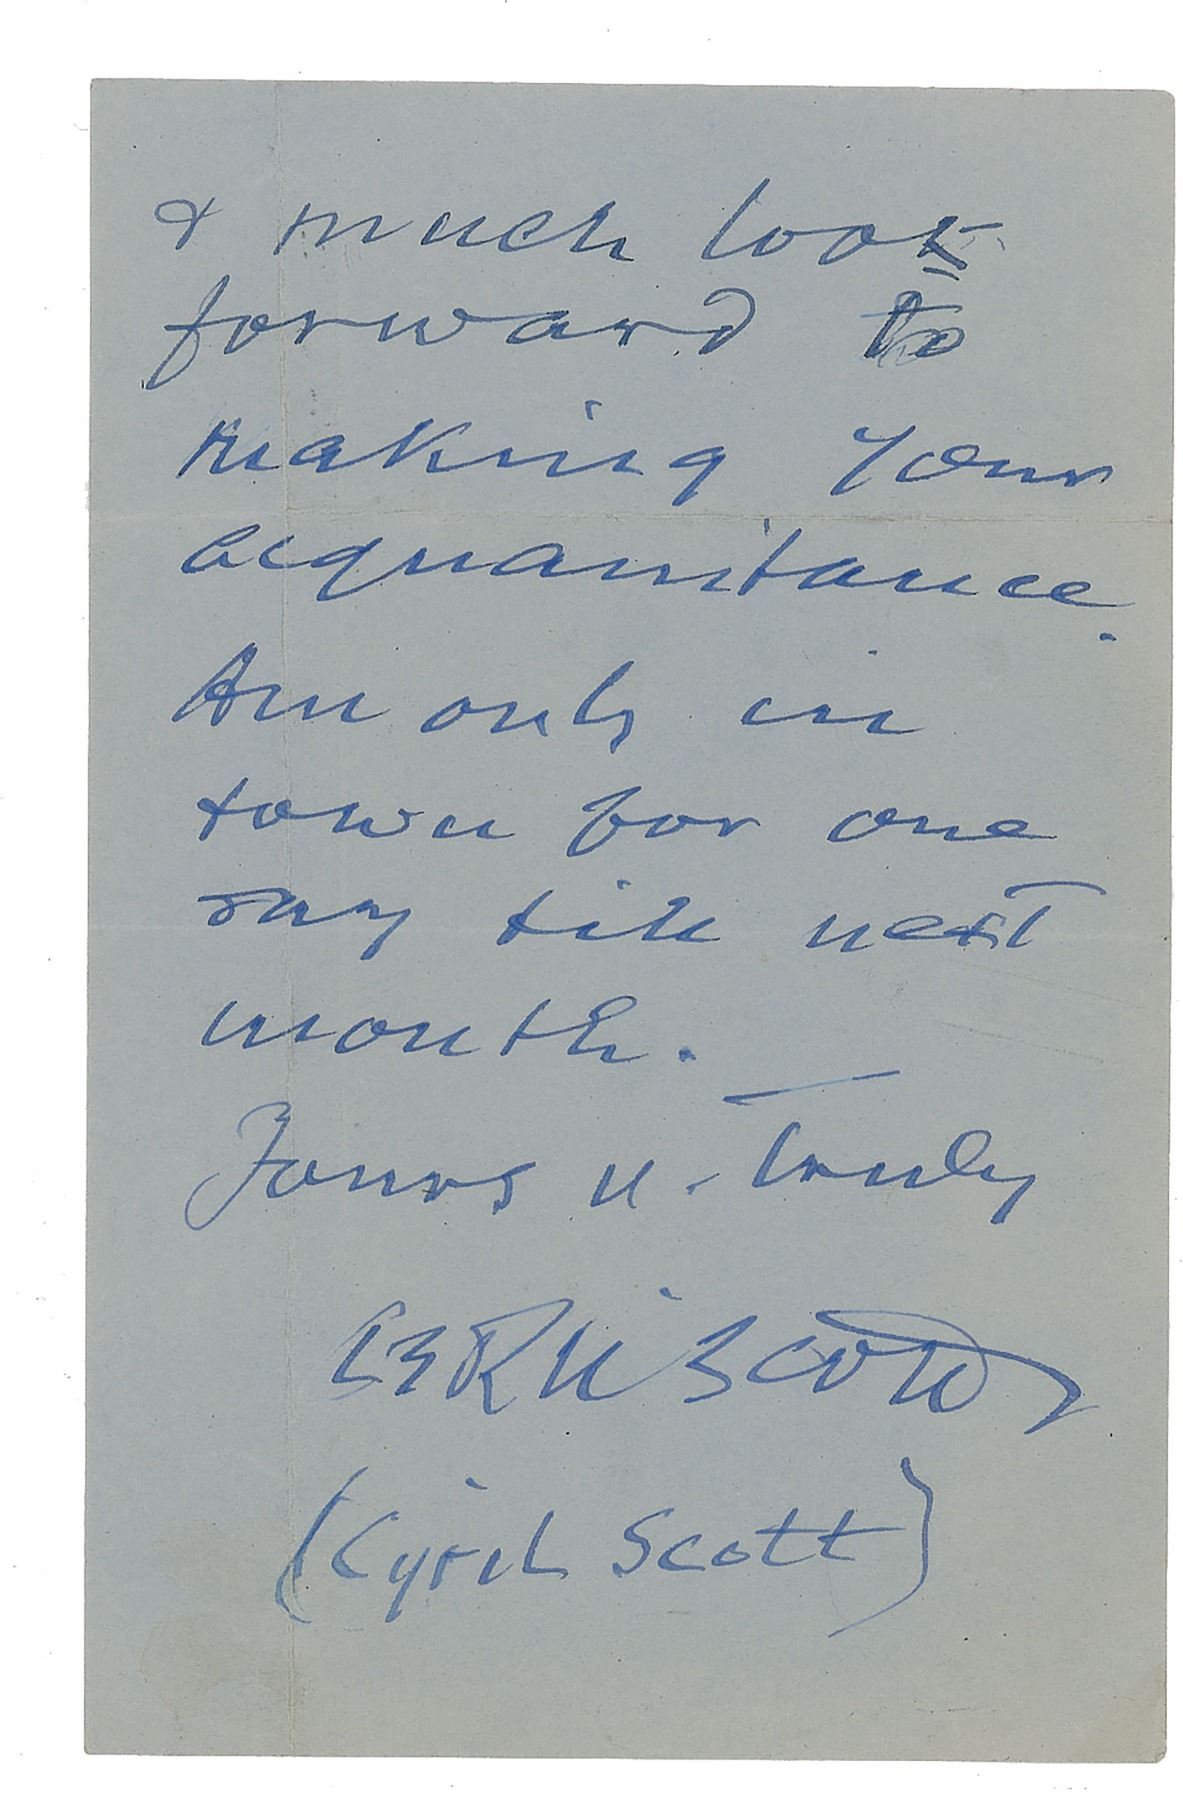 & much look
forward to
making your
acquaintance.
Am only in
town for one
day till next
month.
Yours v. truly
Cyril Scott
(Cyril Scott)